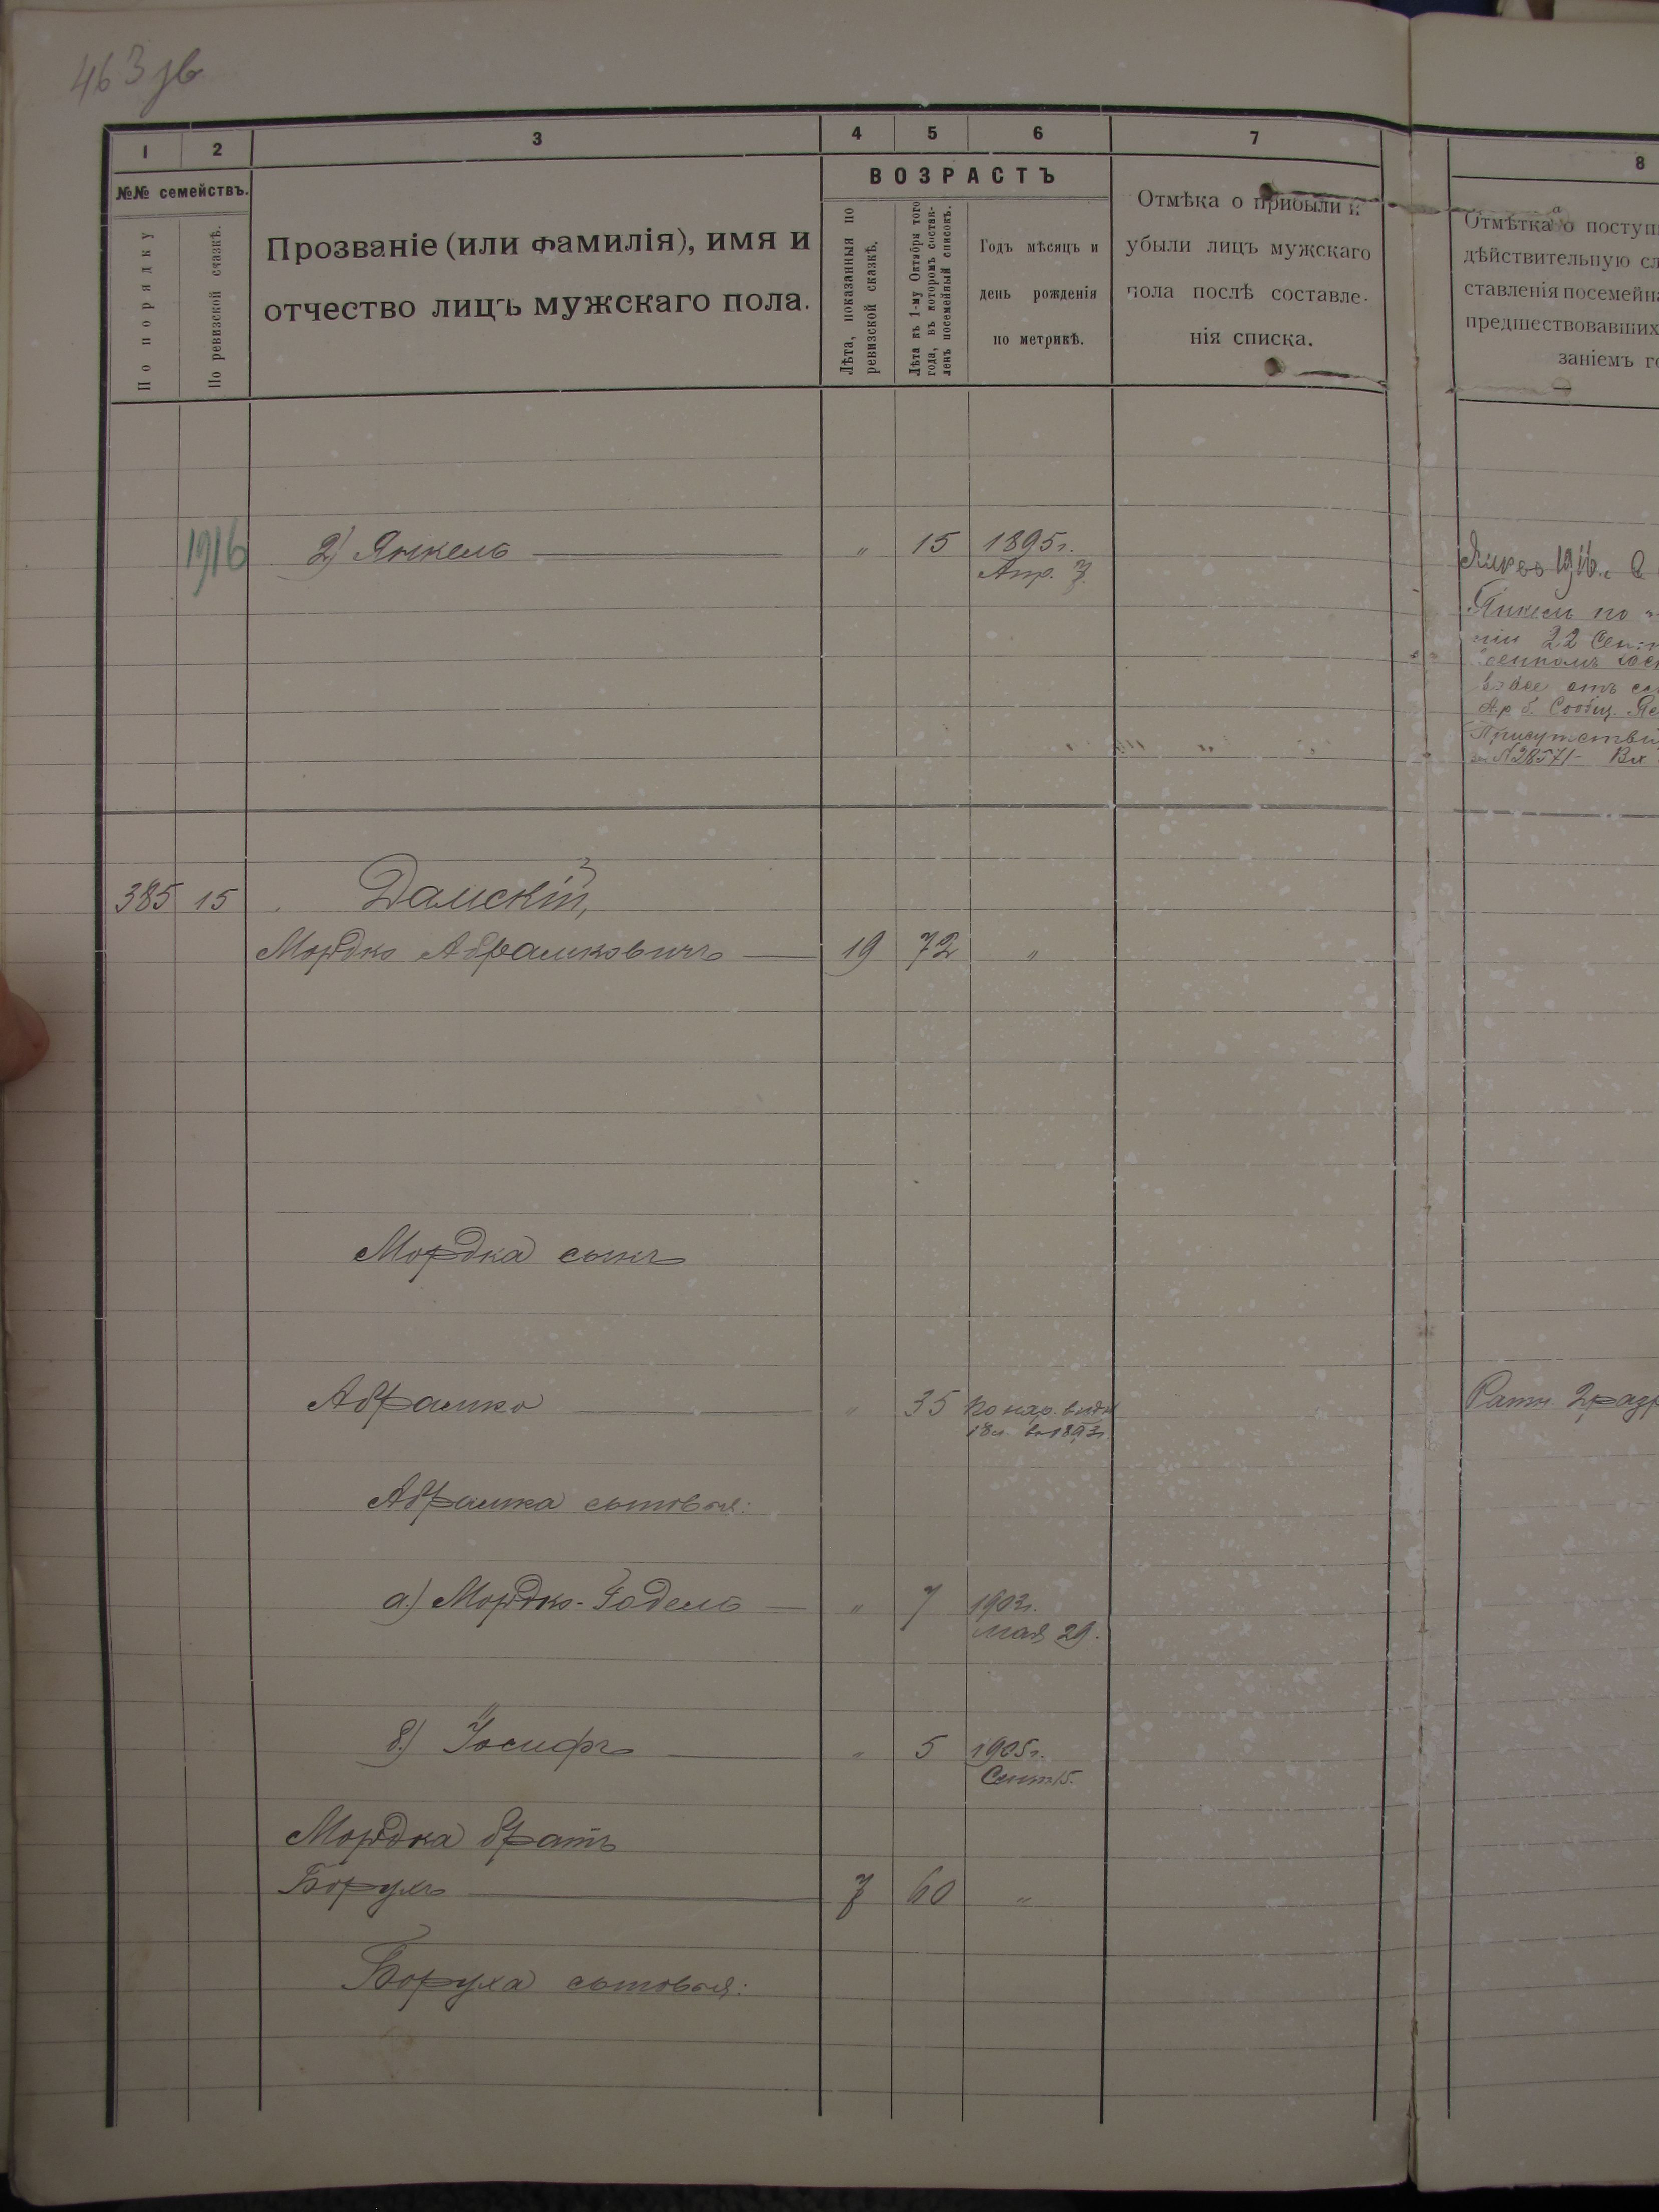 463 зв
1 2 3 4 5 6 7 8
№№ семействъ.
По порядку
По ревизской сказкѣ.
Прозваніе (или фамилія), имя и
отчество лицъ мужскаго пола.
ВОЗРАСТЪ
Лѣта, показанныя по
ревизской сказкѣ.
Лѣта къ 1-му Октября того
года, въ которомъ состав-
ленъ посемейный списокъ.
Годъ мѣсяцъ и
день рожденія
по метрикѣ.
Отмѣка о прибыли и
убыли лицъ мужскаго
пола послѣ составле-
нія списка.
Отмѣтка о поступ
дѣйствительную сл
ставленія посемейн
предшествовавших
заніемъ го
1916 2) Янкель " 15 1895 г.
Апр. 3.
1916 г.
Янкель по
нiи 22 Сен
А.р. б. Сообщ.
Присутстви
за №28571- Вх
385 15 Дамскій,
Мордко Абрамковичъ 19 72 "
Мордка сынъ
Абрамко " 35 по нар. виду
18 л. въ 1893 г.
Ратн. 2 разр
Абрамка сыновья:
а.) Мордко-Годель " 7 1903 г.
мая 29.
б.) Іосифъ " 5 1905 г.
Сент. 15.
Мордка братъ
Борухъ 7 60 "
Боруха сыновья: